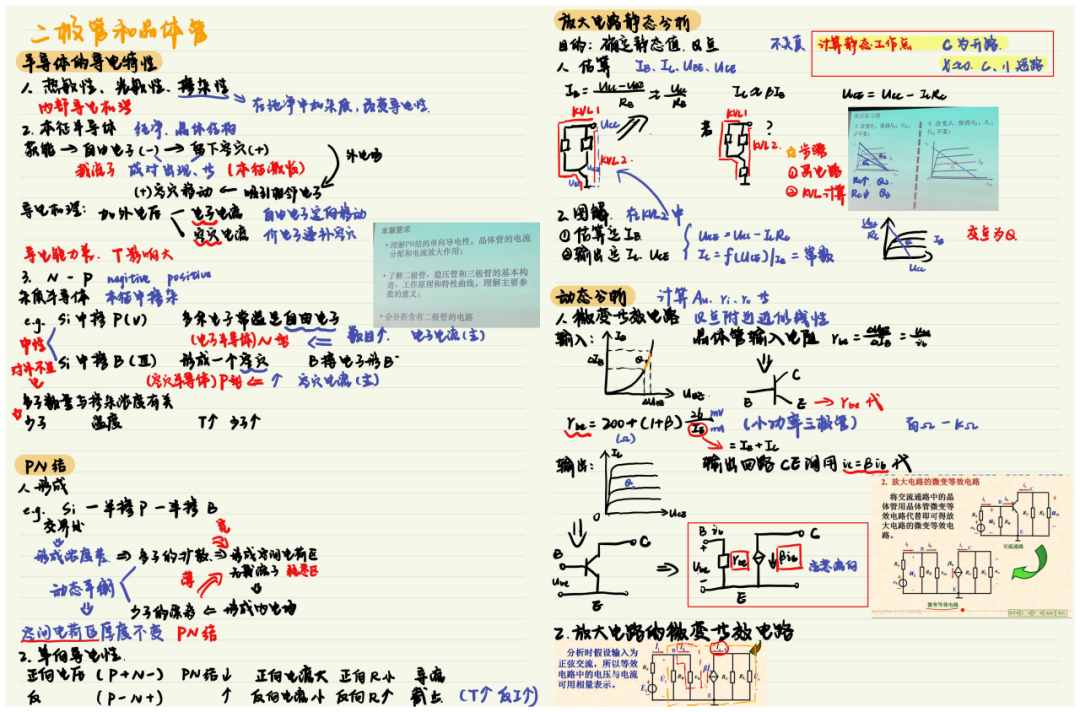 二极管和晶体管
半导体的导电特性
1. 热敏性、光敏性、掺杂性
在纯净中加杂质,改变导电性.
内部导电机理
2. 本征半导体 纯净、晶体结构
获能 → 自由电子(-) → 留下空穴(+)
载流子 成对出现、 (本征激发)
外电场
(+)空穴移动 ← 吸引相邻电子
导电机理: 加外电压 电子电流 自由电子定向移动
空穴电流 价电子递补空穴
导电能力差. T影响大
本章要求
• 理解PN结的单向导电性,晶体管的电流分配和电流放大作用;
• 了解二极管、稳压管和三极管的基本构造、工作原理和特性曲线,理解主要参数的意义;
• 会分析含有二极管的电路
3. N - P negitive positive
杂质半导体 本征中掺杂
e.g. Si 中掺 P(V) 多余电子常温是自由电子
中性 (电子半导体) N型 ⇐ 数目↑. 电子电流(主)
Si 中掺 B(Ⅲ) 形成一个空穴 B接电子形B⁻
对外不显电 (空穴半导体) P型 ⇐ ↑ 空穴电流(主)
多子数量与掺杂浓度有关
少子 温度 T↑ 少子↑
PN结
1. 形成
e.g. Si 一半掺 P 一半掺 B
交界处 宽
形成浓度差 ⇒ 多子的扩散 ⇒ 形成空间电荷区
无载流子 耗尽区
动态平衡 薄
少子的漂移 ⇐ 形成内电场
空间电荷区厚度不变 PN结
2. 单向导电性
正向电压 (P+N-) PN结↓ 正向电流大 正向R小 导通
反 (P-N+) ↑ 反向电流小 反向R↑ 截止 (T↑ 反I↑)
放大电路静态分析
目的: 确定静态值. Q点 不失真
计算静态工作点 C为开路.
C、 短路
1. 估算 I_B、I_C、U_BE、U_CE
I_B = (U_CC-U_BE)/R_B ≈ U_CC/R_B I_C ≈ βI_B U_CE = U_CC - I_C R_C
KVL1 U_CC KVL2.
若 KVL1 KVL2. ?
步骤
① 画电路
② KVL计算
2. 图解. 在KVL2中
① 估算定 I_B U_CE = U_CC - I_C R_C
② 输出定 I_C. U_CE I_C = f(U_CE)|I_B = 常数
U_CC/R_C I_B U_CC 交点为Q.
动态分析 计算 Au、ri、ro 等
1. 微变等效电路 Q点附近近似线性
输入: I_B ΔI_B Q ΔU_BE U_BE
晶体管输入电阻 r_be = ΔU_BE/ΔI_B = u_be/i_b
B C E → r_be 代
r_be = 200 + (1+β) 26/I_E mV mA (小功率三极管) 百Ω - kΩ
(Ω) = I_B + I_C
输出: I_C Q U_CE 输出回路 CE 间用 i_c = βi_b 代
B U_be C E ⇒ B i_b U_be r_be βi_b C E 注意流向
2. 放大电路的微变等效电路
将交流通路中的晶体管用晶体管微变等效电路代替即可得放大电路的微变等效电路。
交流通路
微变等效电路
2. 放大电路的微变等效电路
分析时假设输入为正弦交流,所以等效电路中的电压与电流可用相量表示。